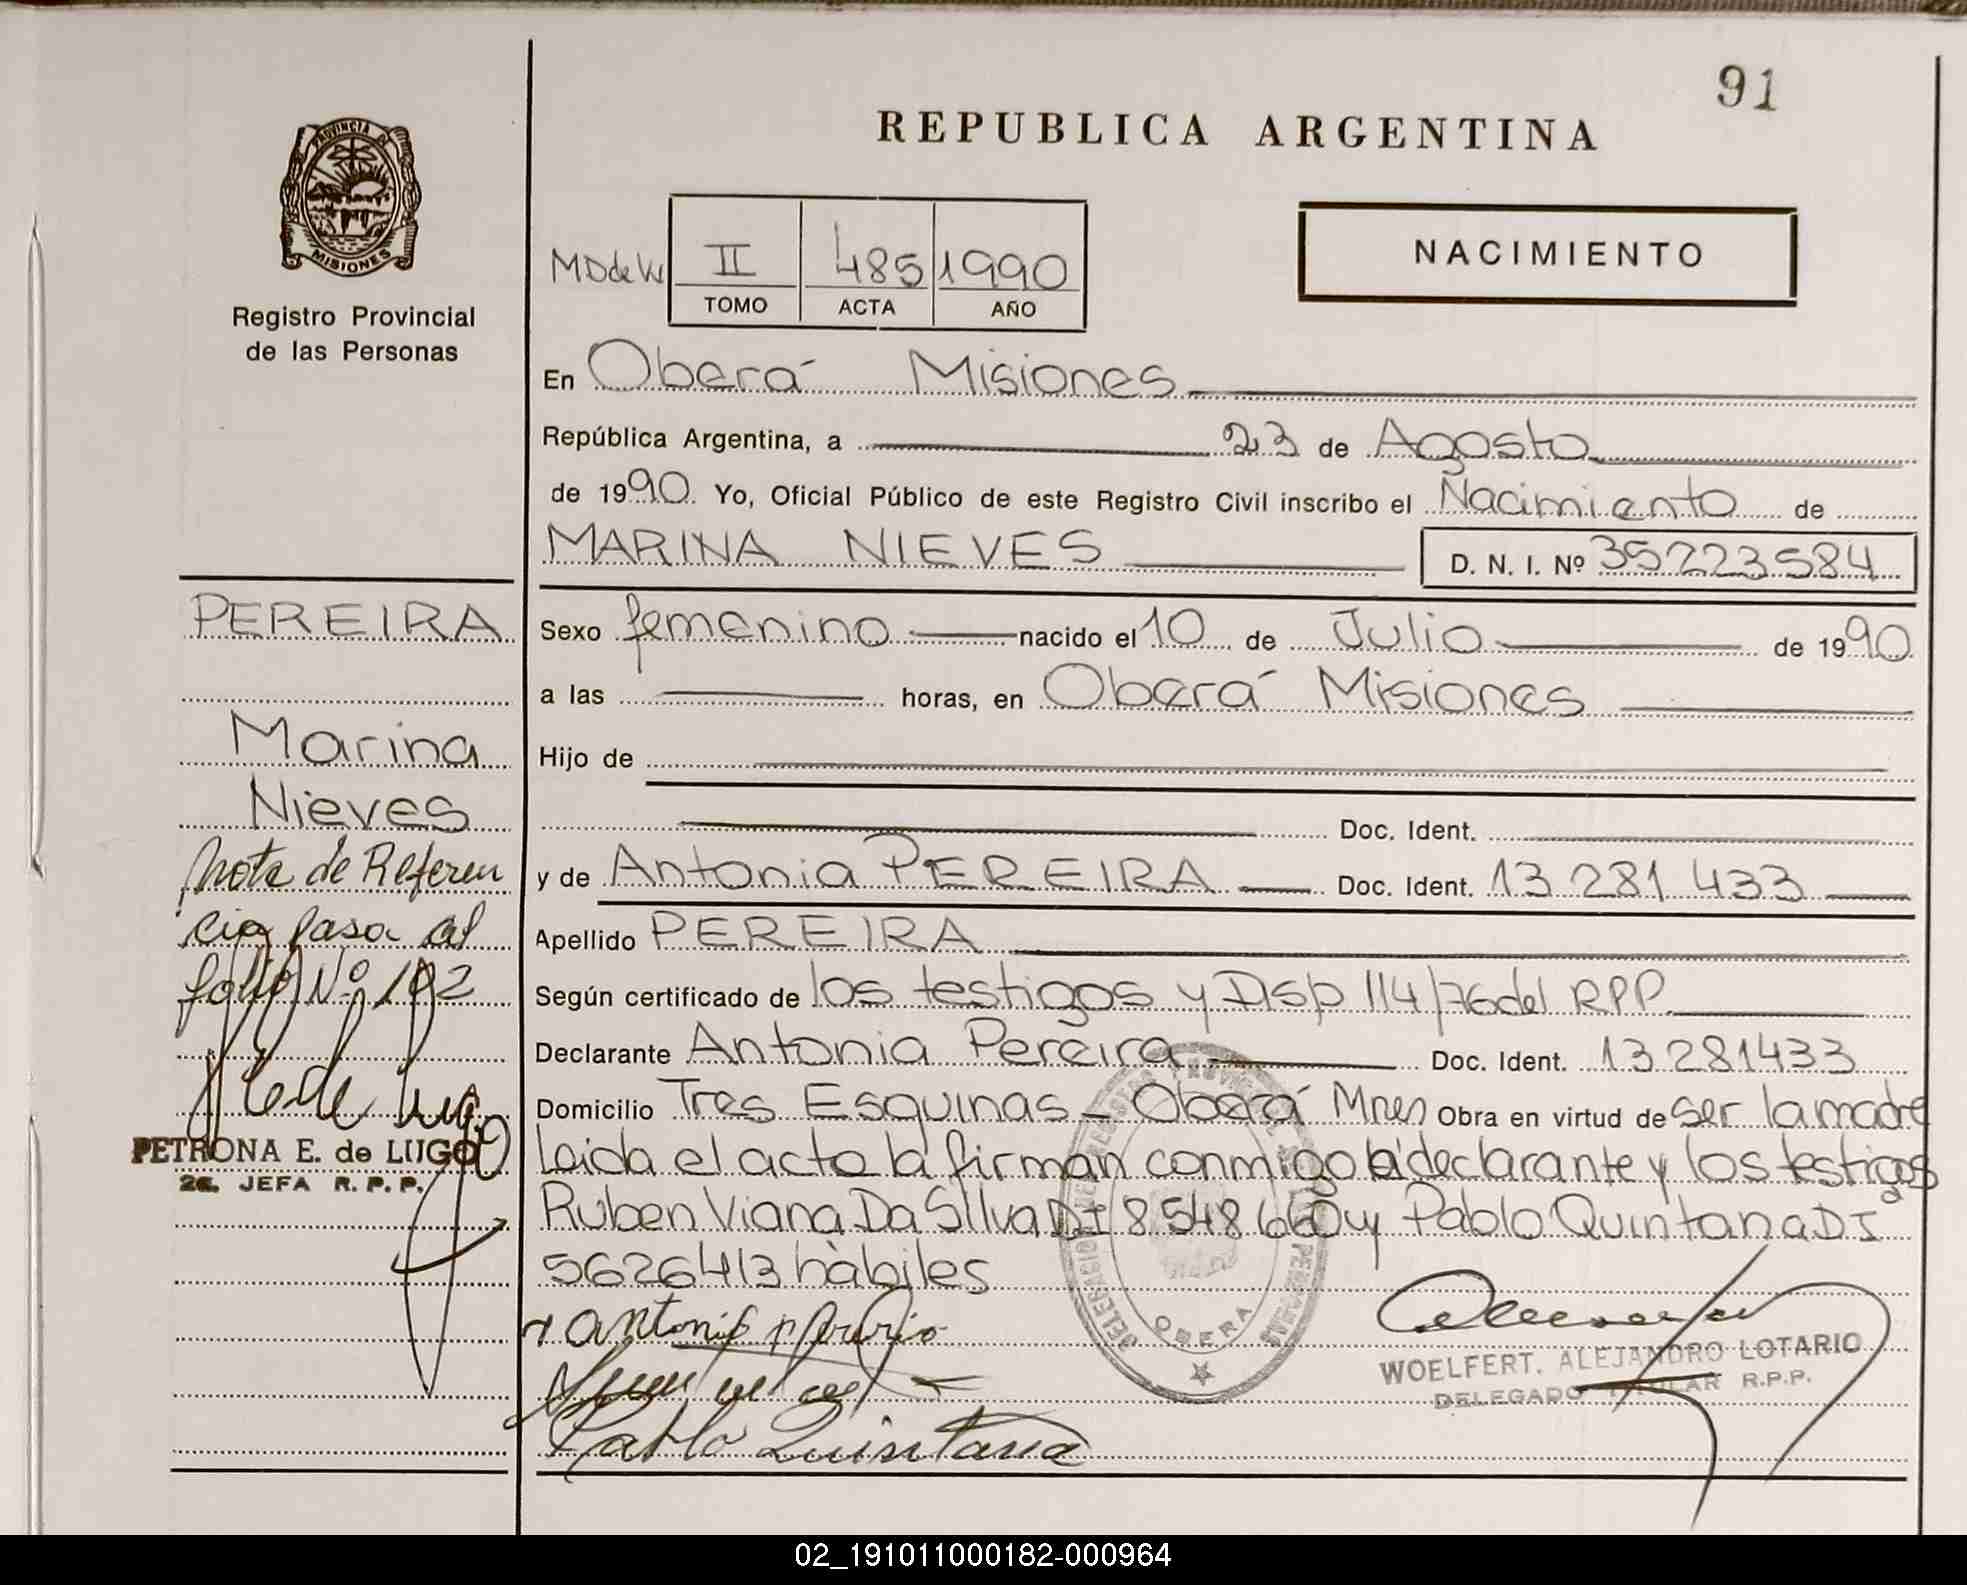 91
REPUBLICA ARGENTINA
PROVINCIA DE
MISIONES
Registro Provincial
de las Personas
II 485 1990
TOMO ACTA AÑO
NACIMIENTO
En Oberá Misiones
República Argentina, a 23 de Agosto
de 1990 Yo, Oficial Público de este Registro Civil inscribo el Nacimiento de
MARINA NIEVES D. N. I. Nº 35223584
PEREIRA
Marina
Nieves
Nota de Referen
cia pasa al
folio Nº 102
PETRONA E. de LUGO
2a. JEFA R. P. P.
Sexo femenino nacido el 10 de Julio de 1990
a las horas, en Oberá Misiones
Hijo de
Doc. Ident.
y de Antonia PEREIRA Doc. Ident. 13 281 433
Apellido PEREIRA
Según certificado de los testigos y Disp 114/76 del RPP
Declarante Antonia Pereira Doc. Ident. 13281433
Domicilio Tres Esquinas - Oberá Mnes Obra en virtud de ser la madre
Leida el acta la firman conmigo la declarante y los testigos
Ruben Viana Da Silva DI 8.548 660 y Pablo Quintana DI
5626413 hàbiles
Pablo Quintana
OBERA
WOELFERT. ALEJANDRO LOTARIO
DELEGADO TITULAR R.P.P.
02_191011000182-000964